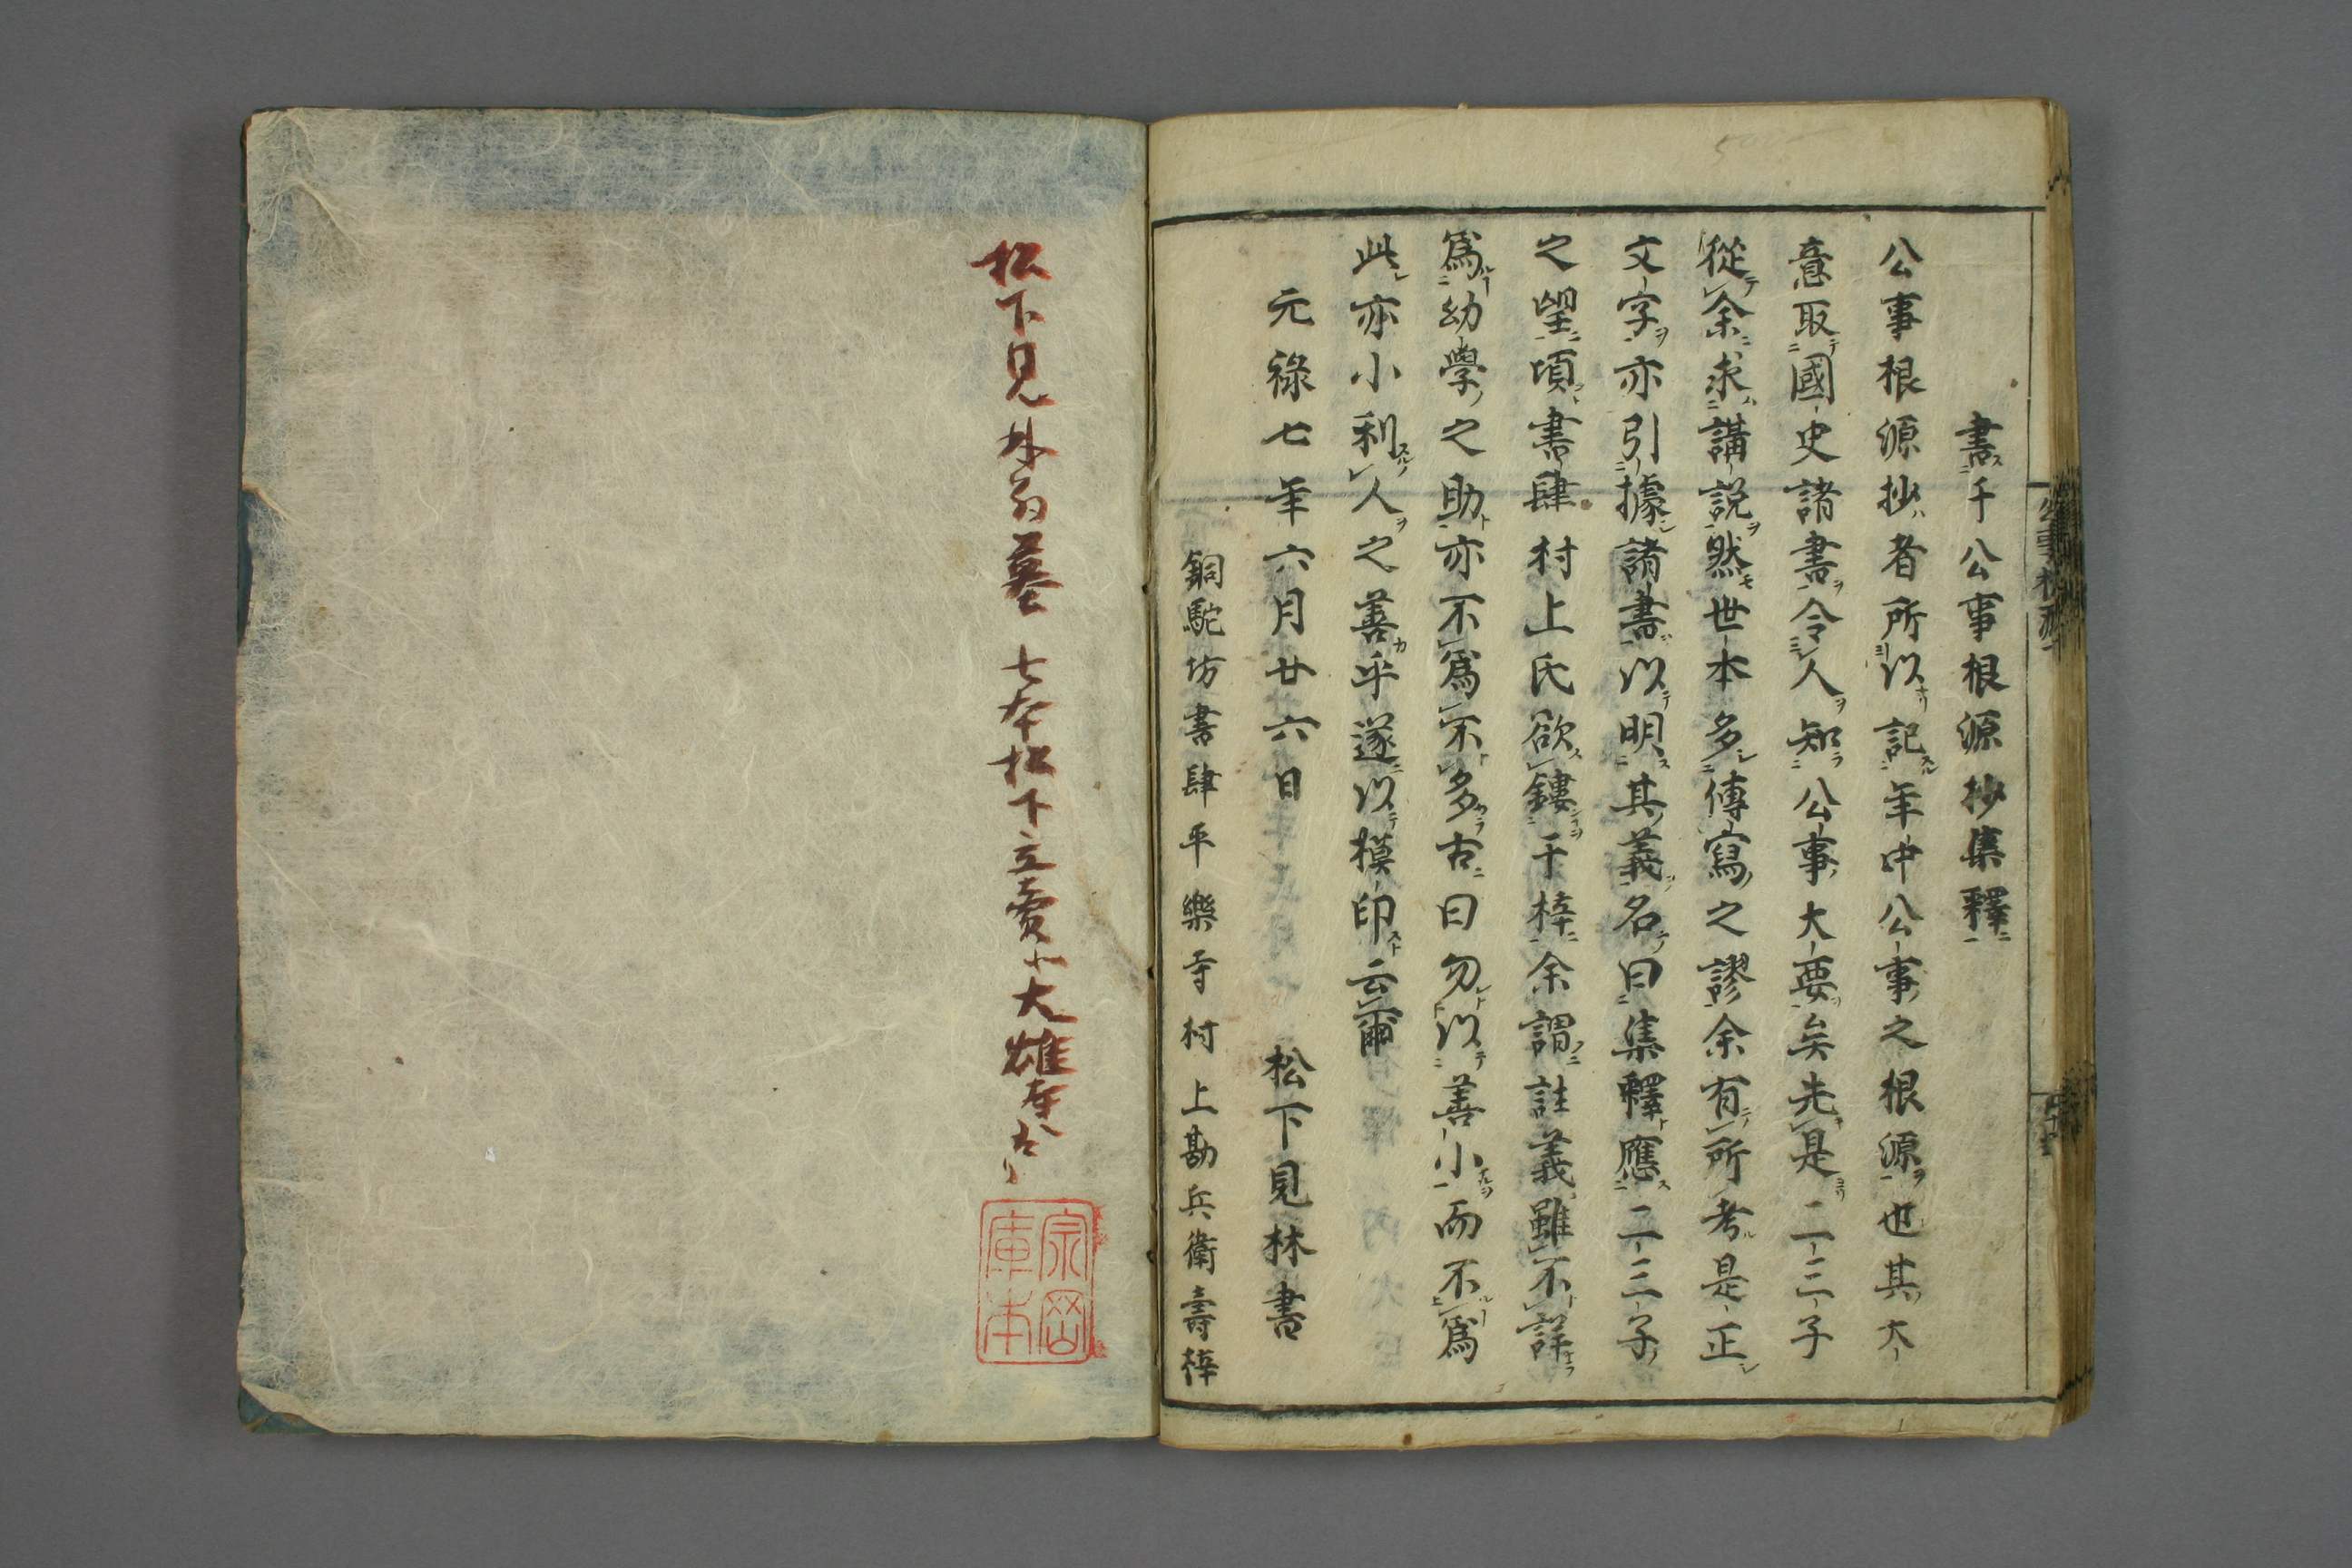 書千公事根源抄集釋
公事根源抄者所以記年中公事之根源也其大
意取國史諸書令人知公事大要矣先是二三子
從余求講說然世本多傳寫之謬余有所考是正
文字亦引據諸書以明其義名曰集釋應二三子
之望頃書肆村上氏欲鏤于梓余謂註義雖不詳
爲幼學之助亦不爲不多古曰勿以善小而不爲
此亦小利人之善乎遂以模印云爾
元祿七年六月廿六日 松下見林書
銅駝坊書肆平樂寺村上勘兵衛壽梓
松下見林翁墓 七本松下立賣下大雄寺
宗岡庫本